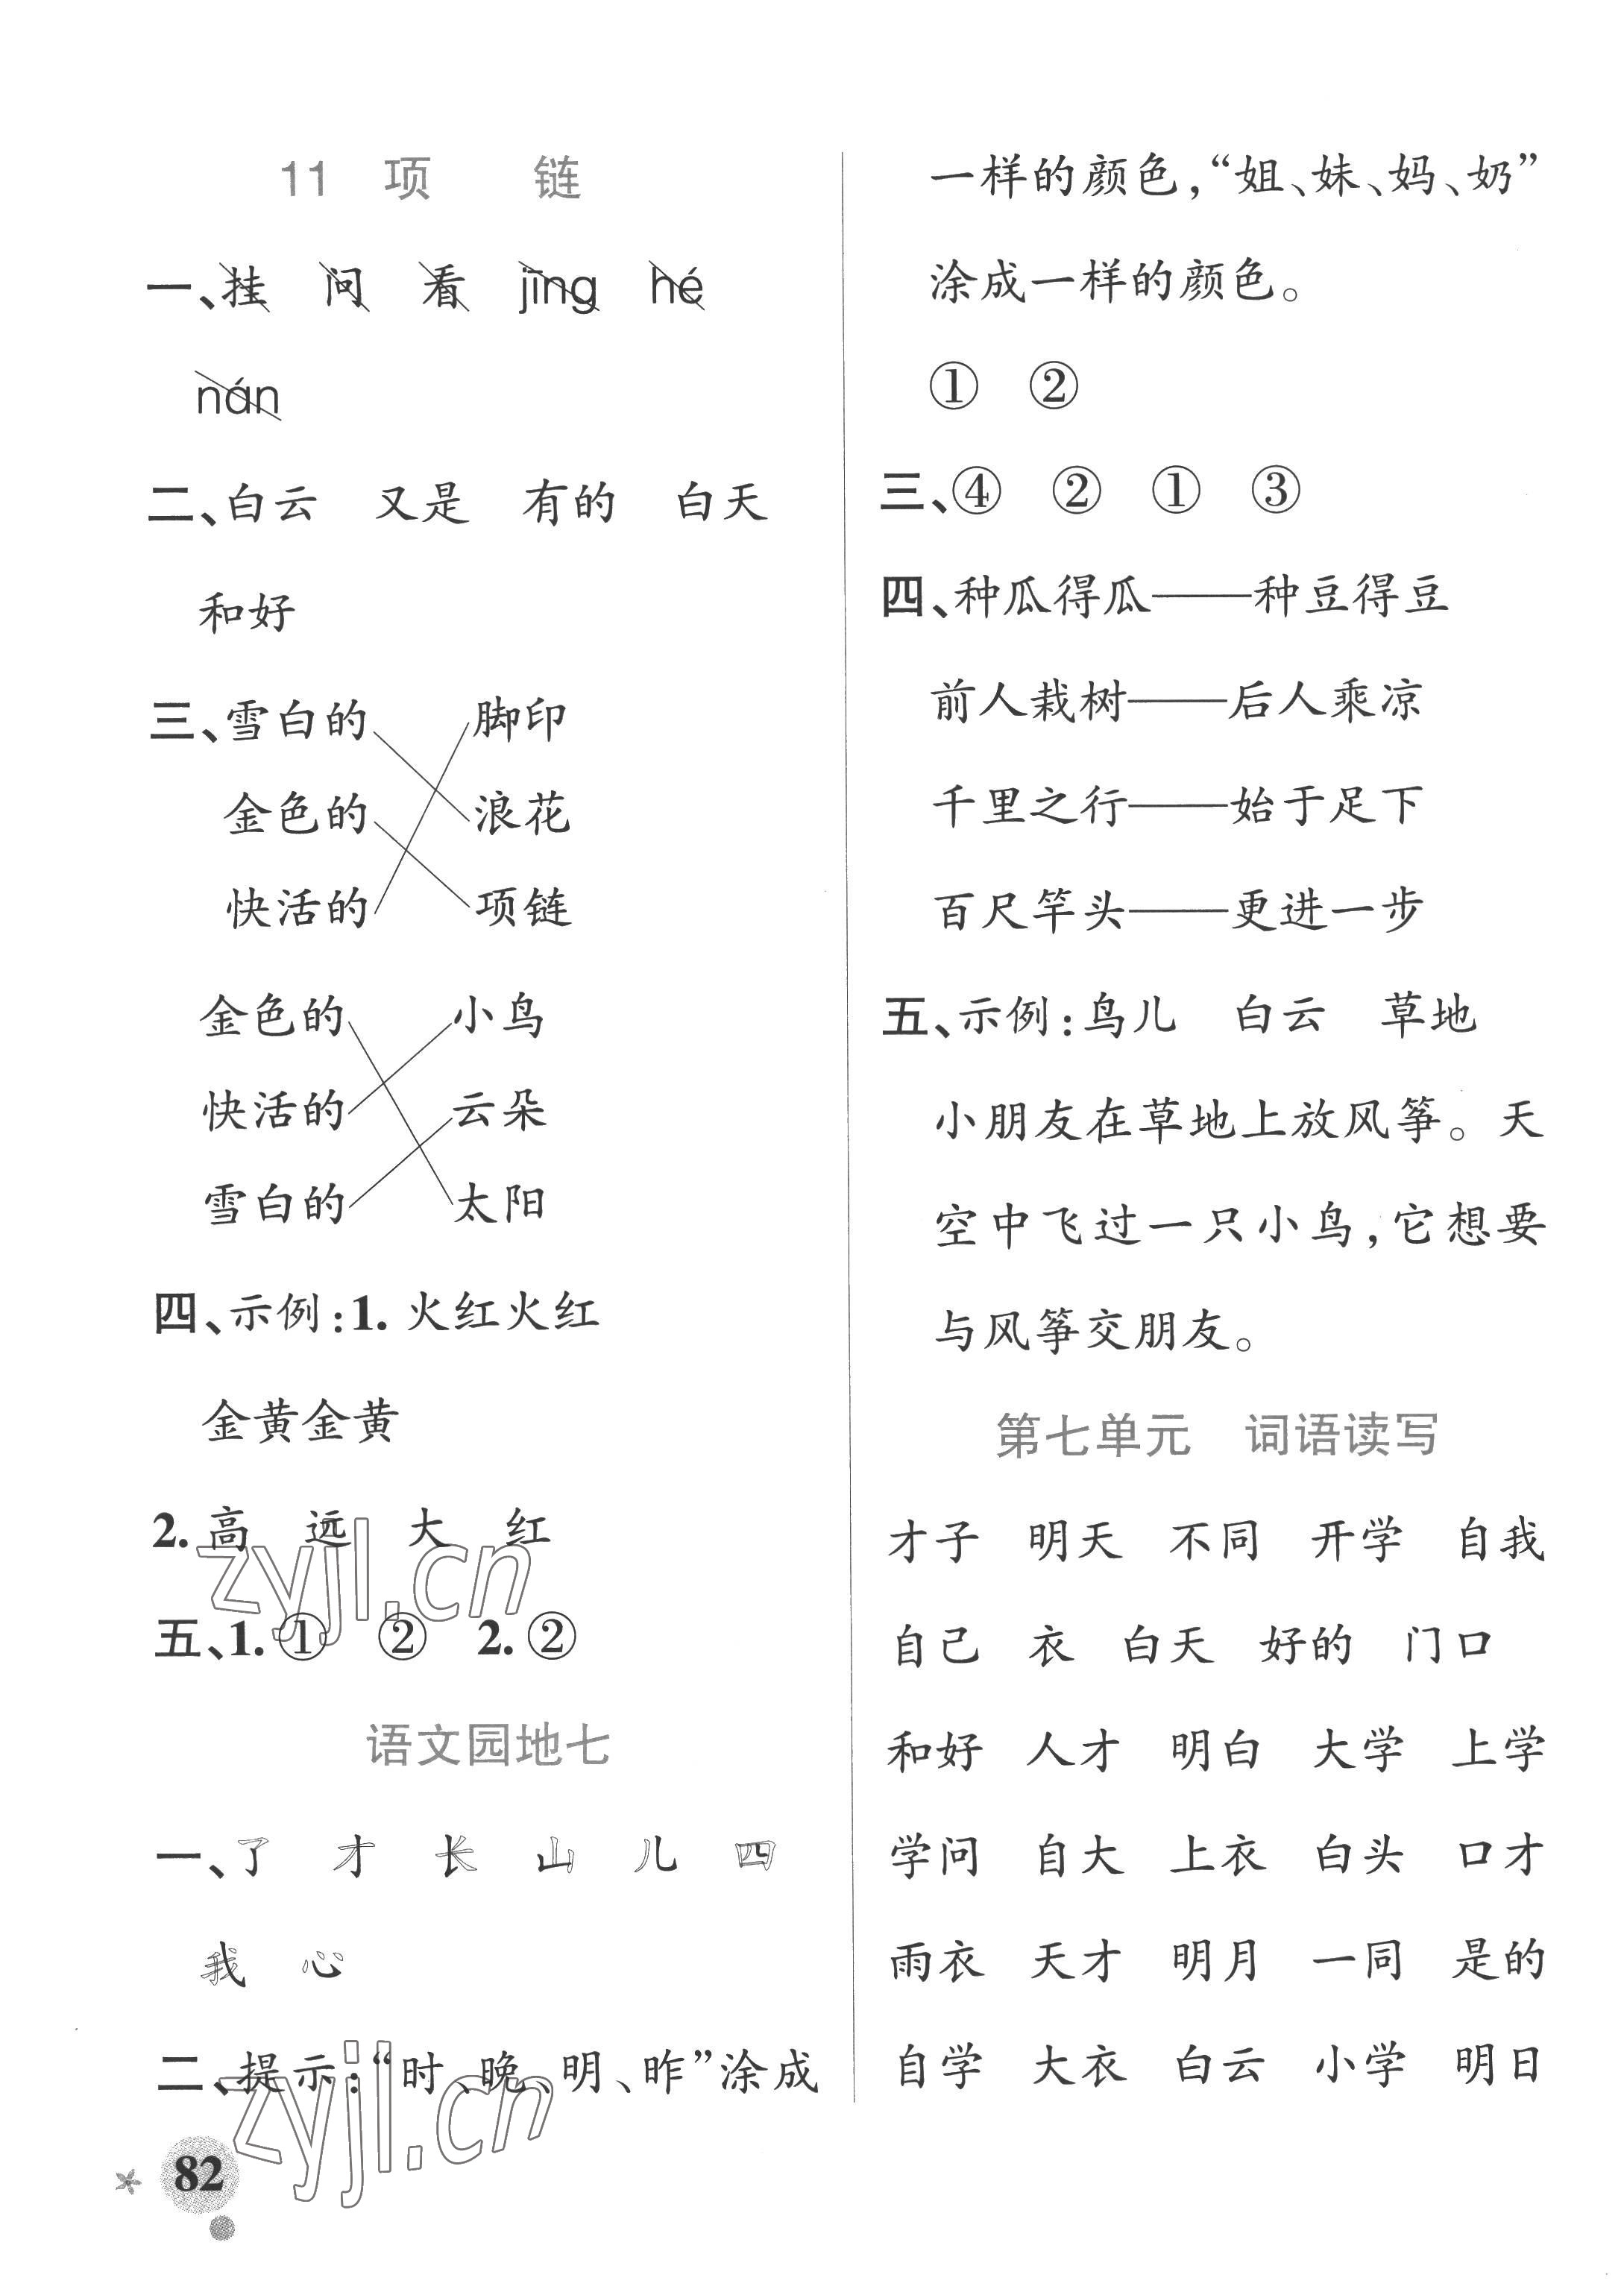 11 项 链
一、挂 问 看 jīng hé
nán
二、白云 又是 有的 白天
和好
三、雪白的 脚印
金色的 浪花
快活的 项链
金色的 小鸟
快活的 云朵
雪白的 太阳
四、示例:1. 火红火红
金黄金黄
2. 高 远 大 红
五、1. ① ② 2. ②
语文园地七
一、了 才 长 山 儿 四
我 心
二、提示:“时、晚、明、昨”涂成
82
一样的颜色,“姐、妹、妈、奶”
涂成一样的颜色。
① ②
三、④ ② ① ③
四、种瓜得瓜——种豆得豆
前人栽树——后人乘凉
千里之行——始于足下
百尺竿头——更进一步
五、示例:鸟儿 白云 草地
小朋友在草地上放风筝。天
空中飞过一只小鸟,它想要
与风筝交朋友。
第七单元 词语读写
才子 明天 不同 开学 自我
自己 衣 白天 好的 门口
和好 人才 明白 大学 上学
学问 自大 上衣 白头 口才
雨衣 天才 明月 一同 是的
自学 大衣 白云 小学 明日
zyjl.cn
zyjl.cn